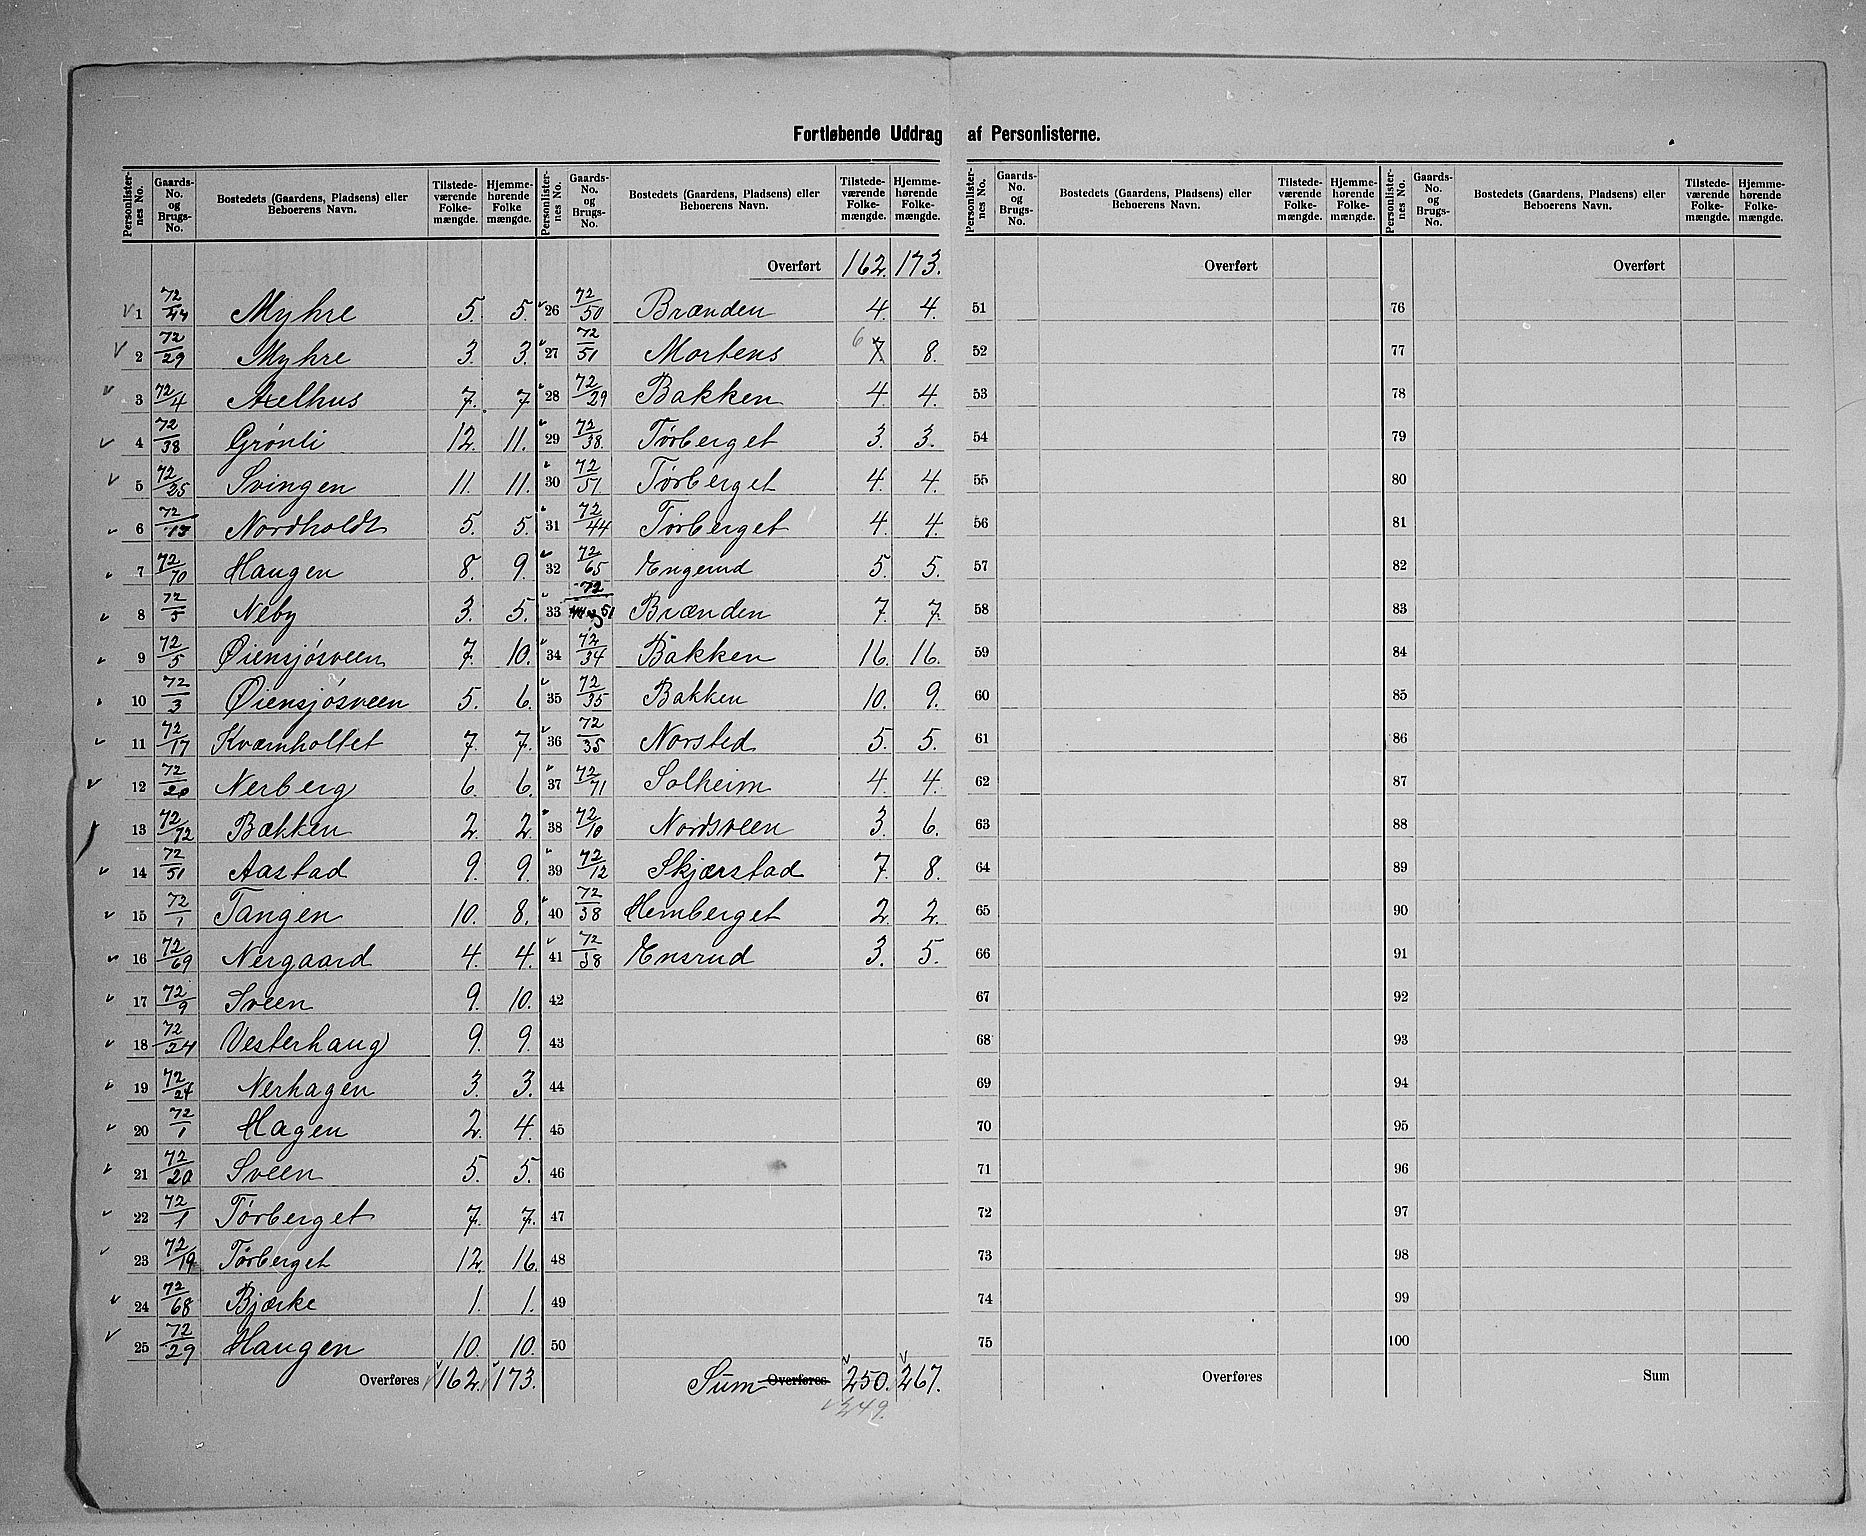 Fortløbende Uddrag af Personlisterne.
Personlisternes No. Gaards-No. og Brugs-No. Bostedets (Gaardens, Pladsens) eller Beboerens Navn. Tilstedeværende Folkemængde. Hjemmehørende Folkemængde.
1 72/44 Myhre 5. 5.
2 72/29 Myhre 3. 3.
3 72/4 Axelhus 7. 7
4 72/38 Grönli 12. 11.
5 72/25 Svingen 11. 11.
6 72/13 Nordholdt 5. 5.
7 72/70 Haugen 8. 9.
8 72/5 Neby 3. 5.
9 72/5 Øiensjösveen 7. 10.
10 72/3 Øiensjösveen 5. 6.
11 72/17 Kværnholtet 7. 7.
12 72/20 Nerberg 6. 6.
13 72/72 Bækken 2. 2.
14 72/51 Aastad 9. 9.
15 72/1 Tangen 10. 8.
16 72/69 Nergaard 4. 4.
17 72/9 Sveen 9. 10.
18 72/24 Vesterhaug 9. 9.
19 72/24 Nerhagen 3. 3.
20 72/1 Hagen 2. 4.
21 72/20 Sveen 5. 5.
22 72/1 Törberget 7. 7.
23 72/19 Törberget 12. 16.
24 72/68 Bjærke 1. 1.
25 72/29 Haugen 10. 10.
Overføres 162. 173.
Personlisternes No. Gaards-No. og Brugs-No. Bostedets (Gaardens, Pladsens) eller Beboerens Navn. Tilstedeværende Folkemængde. Hjemmehørende Folkemængde.
Overført 162. 173.
26 72/50 Brænden 4. 4.
27 72/51 Mortens 6 7. 8.
28 72/29 Bakken 4. 4.
29 72/38. Törberget 3. 3.
30 72/51 Törberget 4. 4.
31 72/44 Törberget 4. 4.
32 72/65 Engerud 5. 5.
33 72/44 og 51 Brænden 7. 7.
34 72/34 Bakken 16. 16.
35 72/35 Bakken 10. 9.
36 72/35 Norsted 5. 5.
37 72/71 Solheim 4. 4.
38 72/10 Nordsveen 3. 6.
39 72/12 Skjærstad 7. 8.
40 72/38 Hemberget 2. 2.
41 72/38 Ensrud 3. 5.
42
43
44
45
46
47
48
49
50
Sum Overføres 250. 267.
249.
Personlisternes No. Gaards-No. og Brugs-No. Bostedets (Gaardens, Pladsens) eller Beboerens Navn. Tilstedeværende Folkemængde. Hjemmehørende Folkemængde.
Overført
51
52
53
54
55
56
57
58
59
60
61
62
63
64
65
66
67
68
69
70
71
72
73
74
75
Overføres
Personlisternes No. Gaards-No. og Brugs-No. Bostedets (Gaardens, Pladsens) eller Beboerens Navn. Tilstedeværende Folkemængde. Hjemmehørende Folkemængde.
Overført
76
77
78
79
80
81
82
83
84
85
86
87
88
89
90
91
92
93
94
95
96
97
98
99
100
Sum